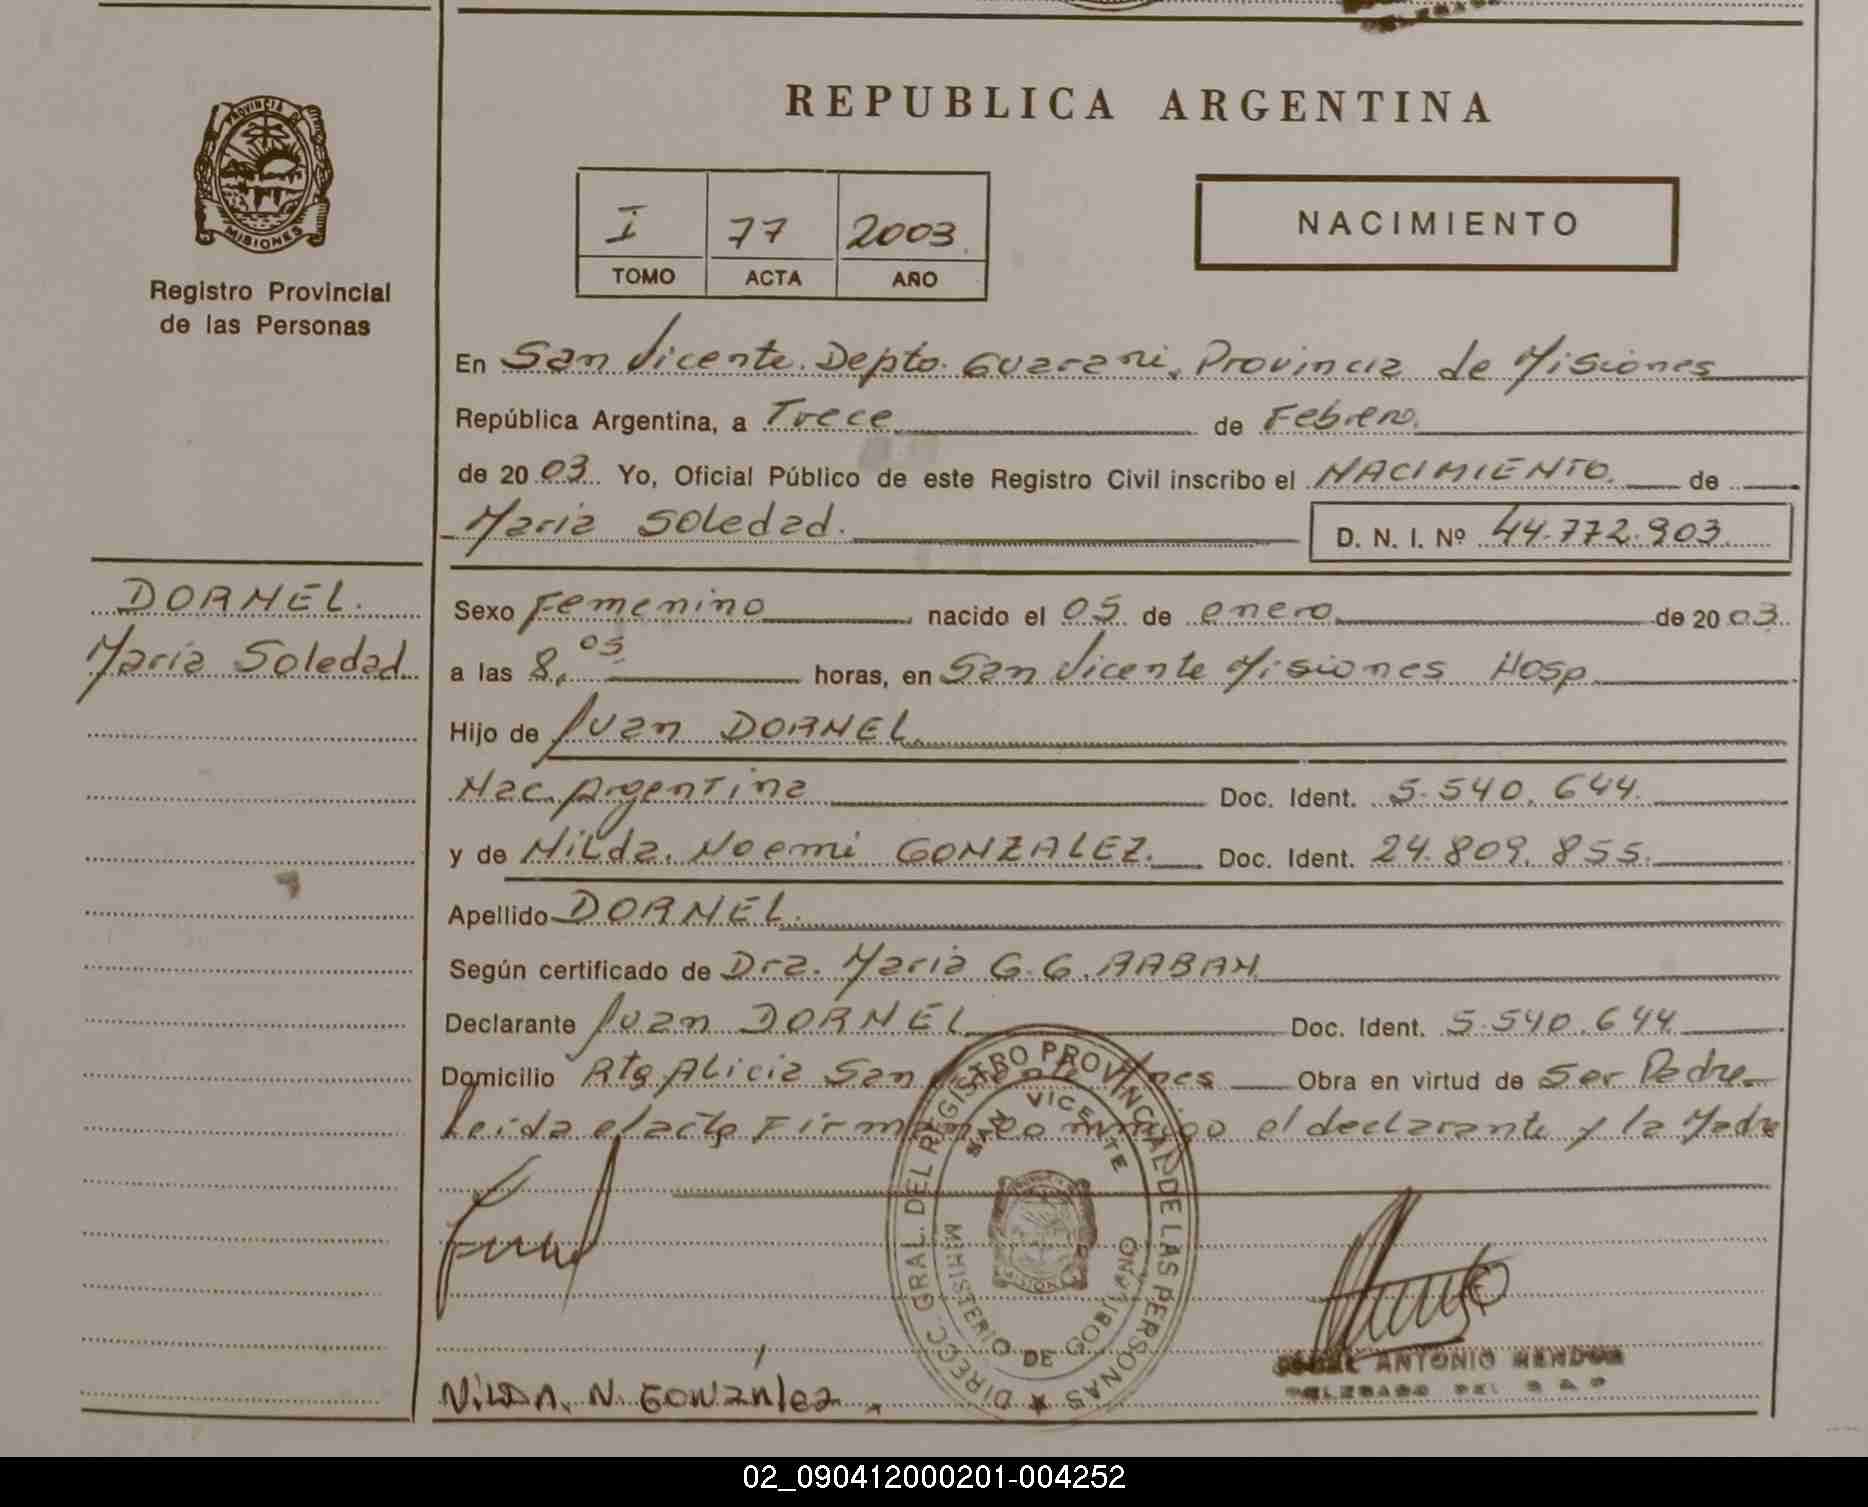 REPUBLICA ARGENTINA
PROVINCIA DE
MISIONES
Registro Provincial
de las Personas
I 77 2003
TOMO ACTA AÑO
NACIMIENTO
En San Vicente. Depto. Guarani, Provincia de Misiones
República Argentina, a Trece de Febrero.
de 20 03. Yo, Oficial Público de este Registro Civil inscribo el NACIMIENTO. de
Maria Soledad. D. N. I. Nº 44.772.903.
DORNEL.
Maria Soledad.
Sexo Femenino nacido el 05 de enero de 20 03.
a las 8,05 horas, en San Vicente Misiones Hosp.
Hijo de Juan DORNEL.
Nac. Argentina Doc. Ident. 5.540.644.
y de Nilda. Noemi GONZALEZ. Doc. Ident. 24.809.855.
Apellido DORNEL.
Según certificado de Dra. Maria G. G.
Declarante Juan DORNEL Doc. Ident. 5.540.644
Domicilio Alicia San Obra en virtud de Ser Padre
Leida el acta Firman conmigo el declarante y la Madre
DIRECC. GRAL. DEL REGISTRO PROVINCIAL DE LAS PERSONAS
SAN VICENTE
MINISTERIO DE GOBIERNO
ANTONIO
NILDA. N. GONZALEZ.
02_090412000201-004252